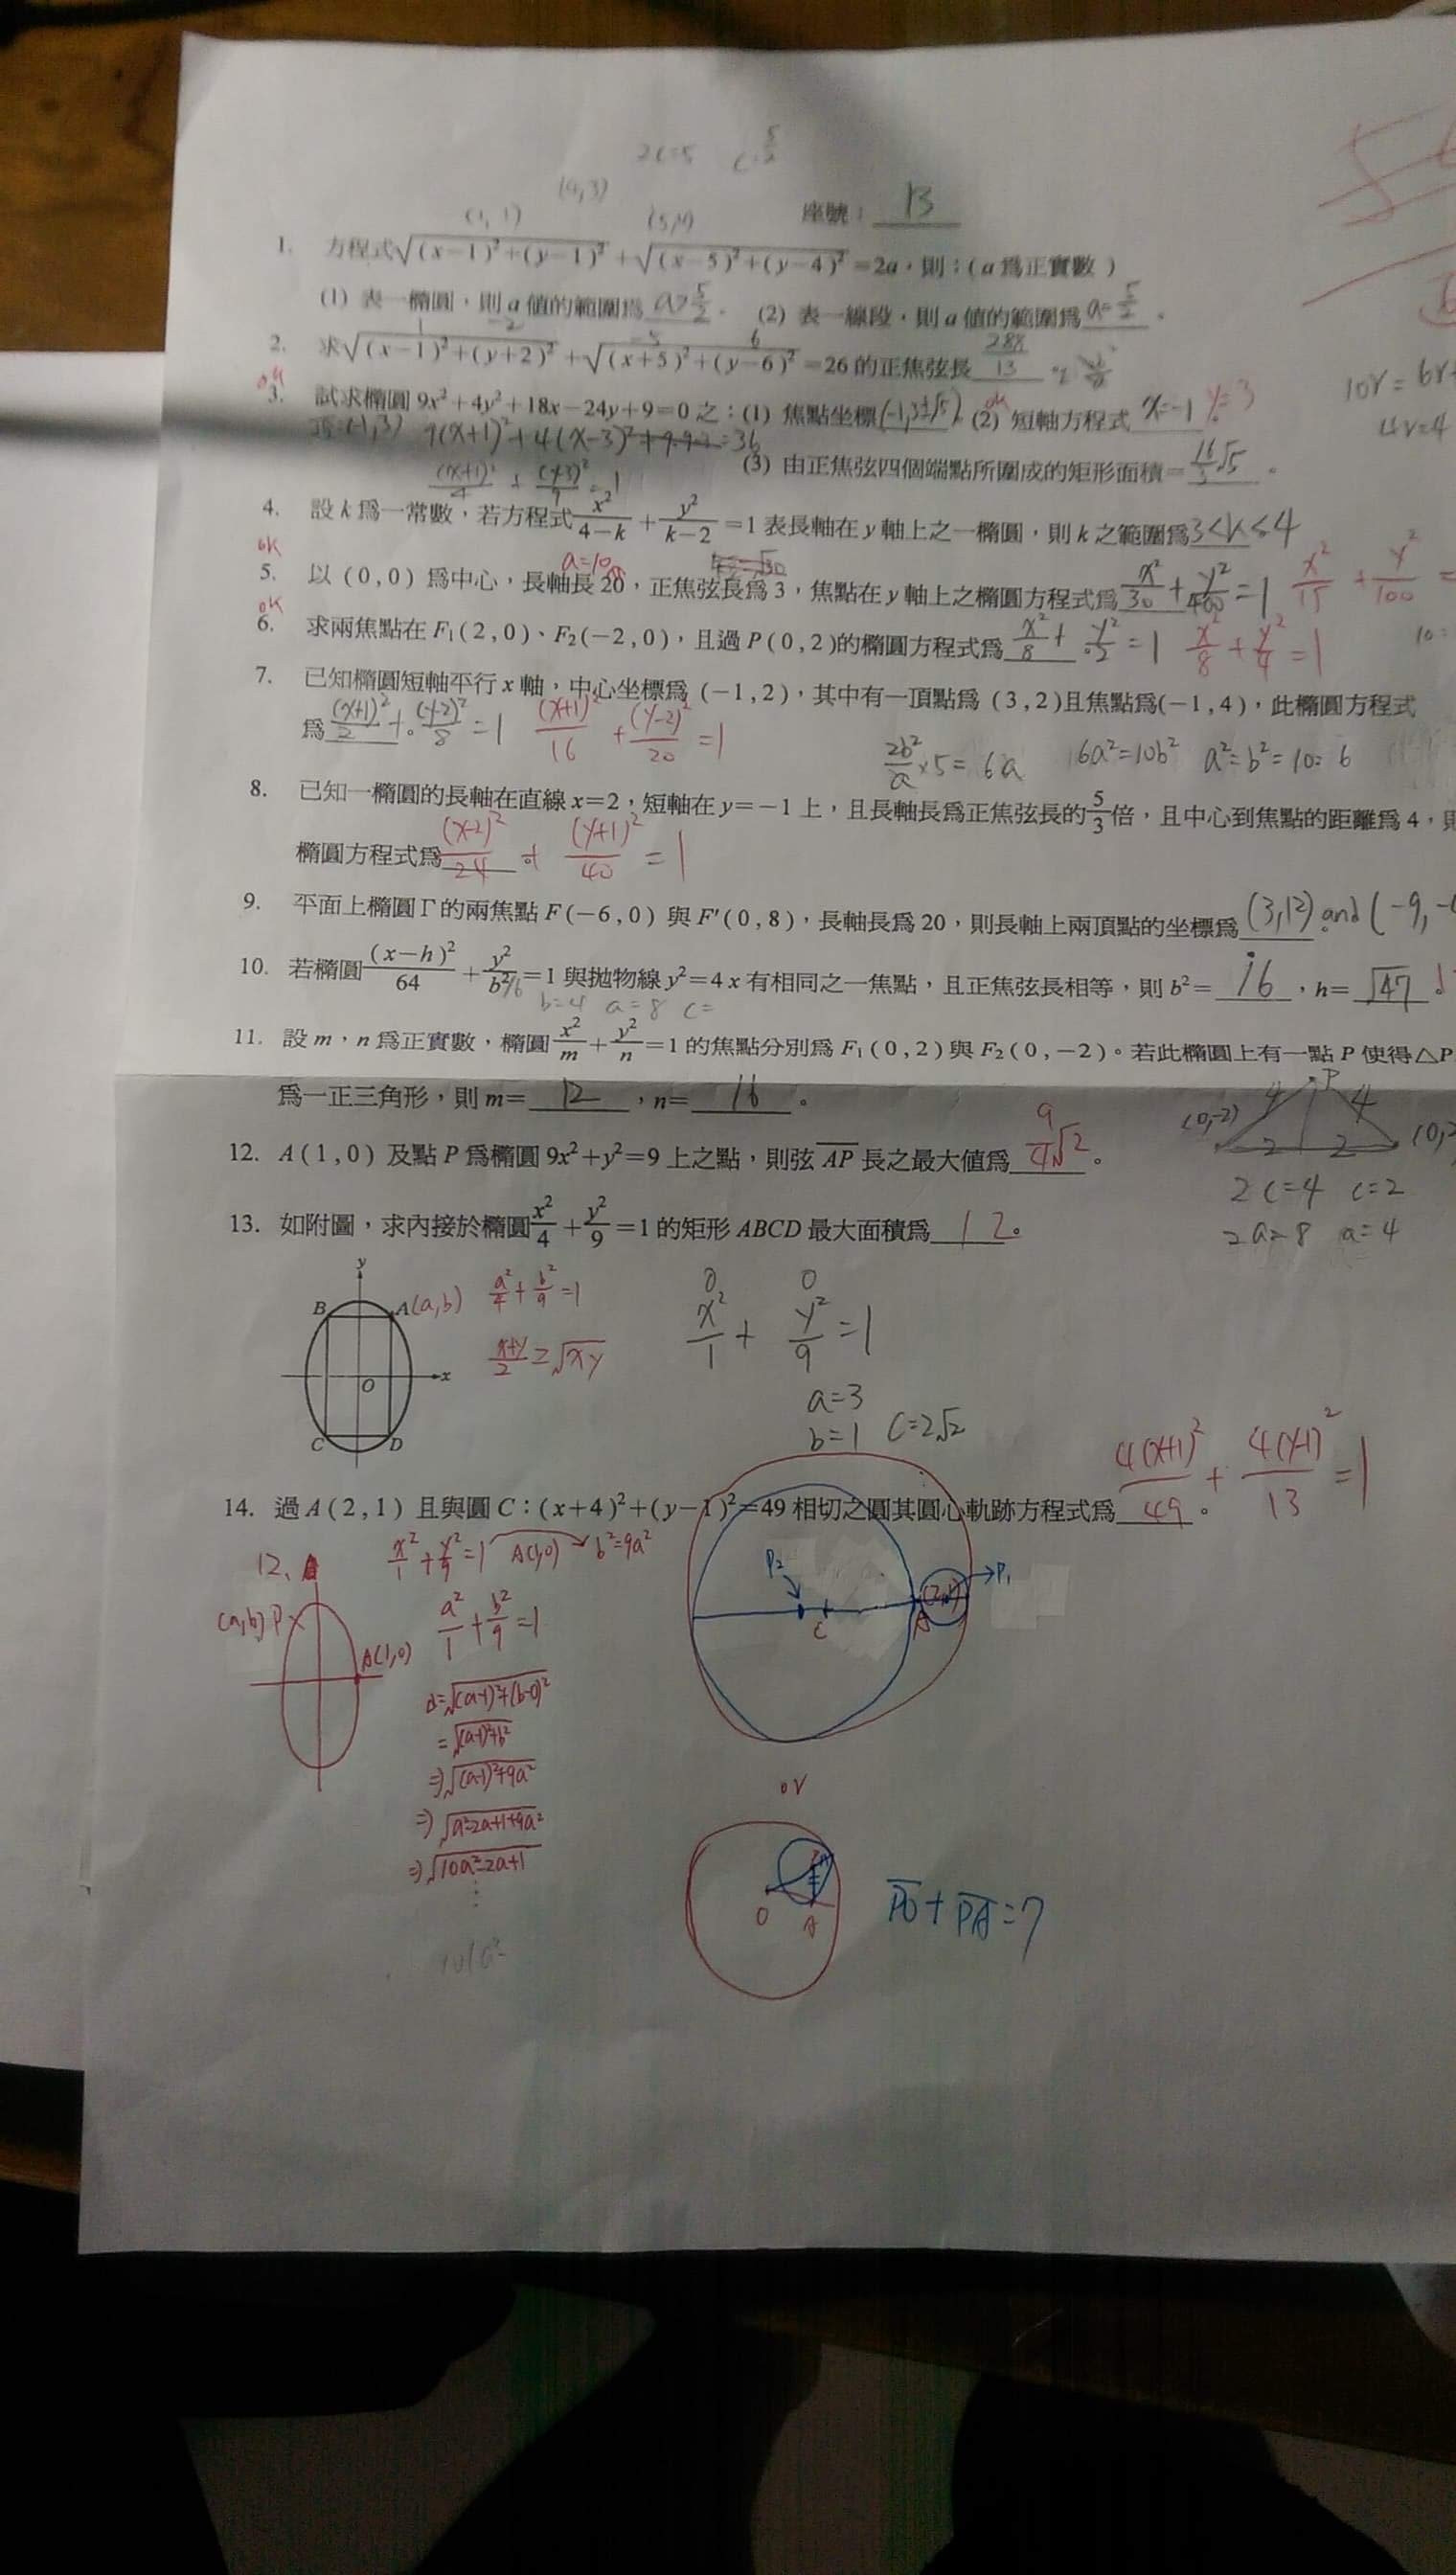 2c=5 c=5/2
(4,3)
(1, 1) (5,4) 座號：13
1. 方程式√((x−1)²+(y−1)²)+√((x−5)²+(y−4)²)=2a，則：(a 為正實數)
(1) 表一橢圓，則 a 值的範圍為 a>5/2 。 (2) 表一線段，則 a 值的範圍為 a=5/2 。
2. 求√((x−1)²+(y+2)²)+√((x+5)²+(y−6)²)=26 的正焦弦長 288/13 。
3. 試求橢圓 9x²+4y²+18x−24y+9=0 之：(1) 焦點坐標(-1,3±√5) (2) 短軸方程式 x=-1 y=3
9(x+1)²+4(x-3)²=36
(x+1)²/4+(y-3)²/9=1 (3) 由正焦弦四個端點所圍成的矩形面積=16/3√5 。
10r=6r+
4r=4
4. 設 k 為一常數，若方程式 x²/(4−k)+y²/(k−2)=1 表長軸在 y 軸上之一橢圓，則 k 之範圍為 3<k<4
ok a=10
5. 以 (0,0) 為中心，長軸長 20，正焦弦長為 3，焦點在 y 軸上之橢圓方程式為 x²/30+y²/400=1 x²/15+y²/100=
ok
6. 求兩焦點在 F₁(2,0)、F₂(−2,0)，且過 P(0,2)的橢圓方程式為 x²/8+y²/2=1 x²/8+y²/4=1
7. 已知橢圓短軸平行 x 軸，中心坐標為 (−1,2)，其中有一頂點為 (3,2)且焦點為(−1,4)，此橢圓方程式
為 (x+1)²/2+(y-2)²/8=1 。 (x+1)²/16+(y-2)²/20=1
2b²/a×5=6a 6a²=10b² a²=b²=10=6
8. 已知一橢圓的長軸在直線 x=2，短軸在 y=−1 上，且長軸長為正焦弦長的 5/3 倍，且中心到焦點的距離為 4，則
橢圓方程式為 (x-2)²/24+(y+1)²/40=1
9. 平面上橢圓 Γ 的兩焦點 F(−6,0) 與 F′(0,8)，長軸長為 20，則長軸上兩頂點的坐標為 (3,12) and (-9,-
10. 若橢圓 (x−h)²/64+y²/b²=1 與拋物線 y²=4x 有相同之一焦點，且正焦弦長相等，則 b²= 16 ，h= √47
b=4 a=8 c=
11. 設 m，n 為正實數，橢圓 x²/m+y²/n=1 的焦點分別為 F₁(0,2) 與 F₂(0,−2)。若此橢圓上有一點 P 使得△P
為一正三角形，則 m= 12 ，n= 16 。
P
(0,-2) 4 4 (0,2
2 2
2c=4 c=2
2a=8 a=4
12. A(1,0) 及點 P 為橢圓 9x²+y²=9 上之點，則弦 AP 長之最大值為 9/4√2 。
13. 如附圖，求內接於橢圓 x²/4+y²/9=1 的矩形 ABCD 最大面積為 12 。
y
B A(a,b) a²/4+b²/9=1
(x+y)/2≥√xy
O x
C D
0 0
x²/1+y²/9=1
a=3
b=1 c=2√2
14. 過 A(2,1) 且與圓 C：(x+4)²+(y−1)²=49 相切之圓其圓心軌跡方程式為 4(x+1)²/49+4(y-1)²/13=1 。
12、 x²/1+y²/9=1 A(1,0) b²=9a²
(a,b)P a²/1+b²/9=1
A(1,0)
d=√((a-1)²+(b-0)²)
=√((a-1)²+b²)
⇒√((a-1)²+9a²)
⇒√(a²-2a+1+9a²)
⇒√(10a²-2a+1)
⋮
P₂ P₁
C A
or
O A
PO+PA=7